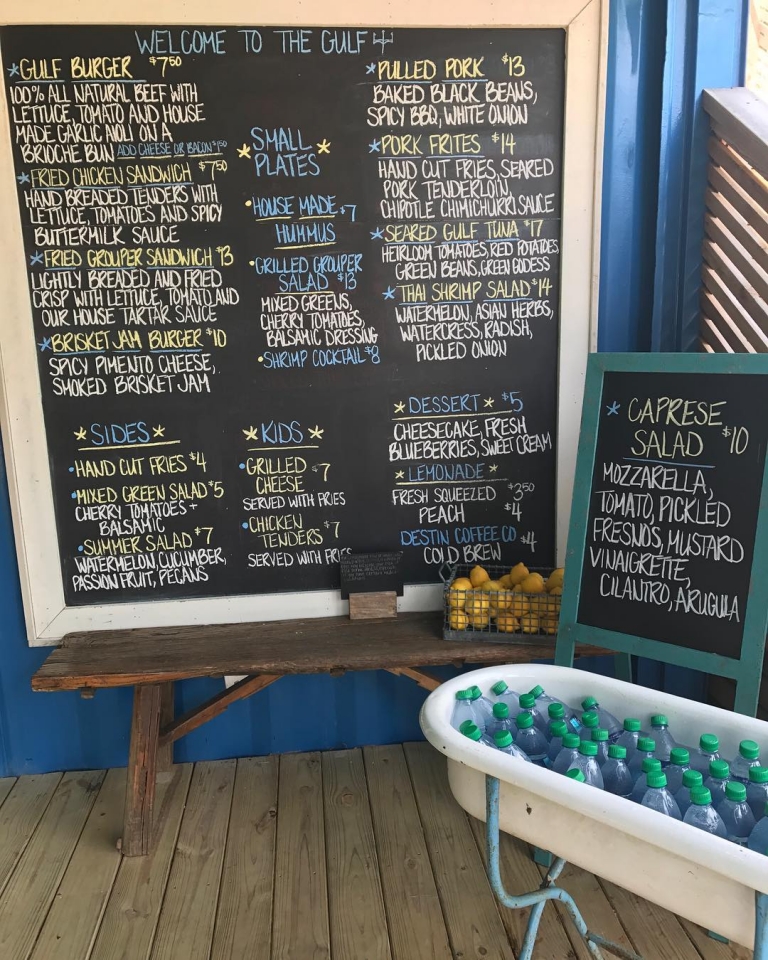 WELCOME TO THE GULF
*GULF BURGER $7.50
100% ALL NATURAL BEEF WITH
LETTUCE, TOMATO AND HOUSE
MADE GARLIC AIOLI ON A
BRIOCHE BUN ADD CHEESE OR BACON $1.50
*FRIED CHICKEN SANDWICH $7.50
HAND BREADED TENDERS WITH
LETTUCE, TOMATOES AND SPICY
BUTTERMILK SAUCE
*FRIED GROUPER SANDWICH $13
LIGHTLY BREADED AND FRIED
CRISP WITH LETTUCE, TOMATO, AND
OUR HOUSE TARTAR SAUCE
*BRISKET JAM BURGER $10
SPICY PIMENTO CHEESE,
SMOKED BRISKET JAM
*SMALL
PLATES*
•HOUSE MADE $7
HUMMUS
•GRILLED GROUPER
SALAD $13
MIXED GREENS,
CHERRY TOMATOES,
BALSAMIC DRESSING
•SHRIMP COCKTAIL $8
*PULLED PORK $13
BAKED BLACK BEANS,
SPICY BBQ, WHITE ONION
*PORK FRITES $14
HAND CUT FRIES, SEARED
PORK TENDERLOIN,
CHIPOTLE CHIMICHURRI SAUCE
*SEARED GULF TUNA $17
HEIRLOOM TOMATOES, RED POTATOES,
GREEN BEANS, GREEN GODDESS
*THAI SHRIMP SALAD $14
WATERMELON, ASIAN HERBS,
WATERCRESS, RADISH,
PICKLED ONION
*SIDES*
•HAND CUT FRIES $4
•MIXED GREEN SALAD $5
CHERRY TOMATOES +
BALSAMIC
•SUMMER SALAD $7
WATERMELON, CUCUMBER,
PASSION FRUIT, PECANS
*KIDS*
•GRILLED $7
CHEESE
SERVED WITH FRIES
•CHICKEN
TENDERS $7
SERVED WITH FRIES
*DESSERT* $5
CHEESECAKE, FRESH
BLUEBERRIES, SWEET CREAM
*LEMONADE*
FRESH SQUEEZED $3.50
PEACH $4
DESTIN COFFEE CO
COLD BREW $4
*CAPRESE
SALAD $10
MOZZARELLA,
TOMATO, PICKLED
FRESNOS, MUSTARD
VINAIGRETTE,
CILANTRO, ARUGULA